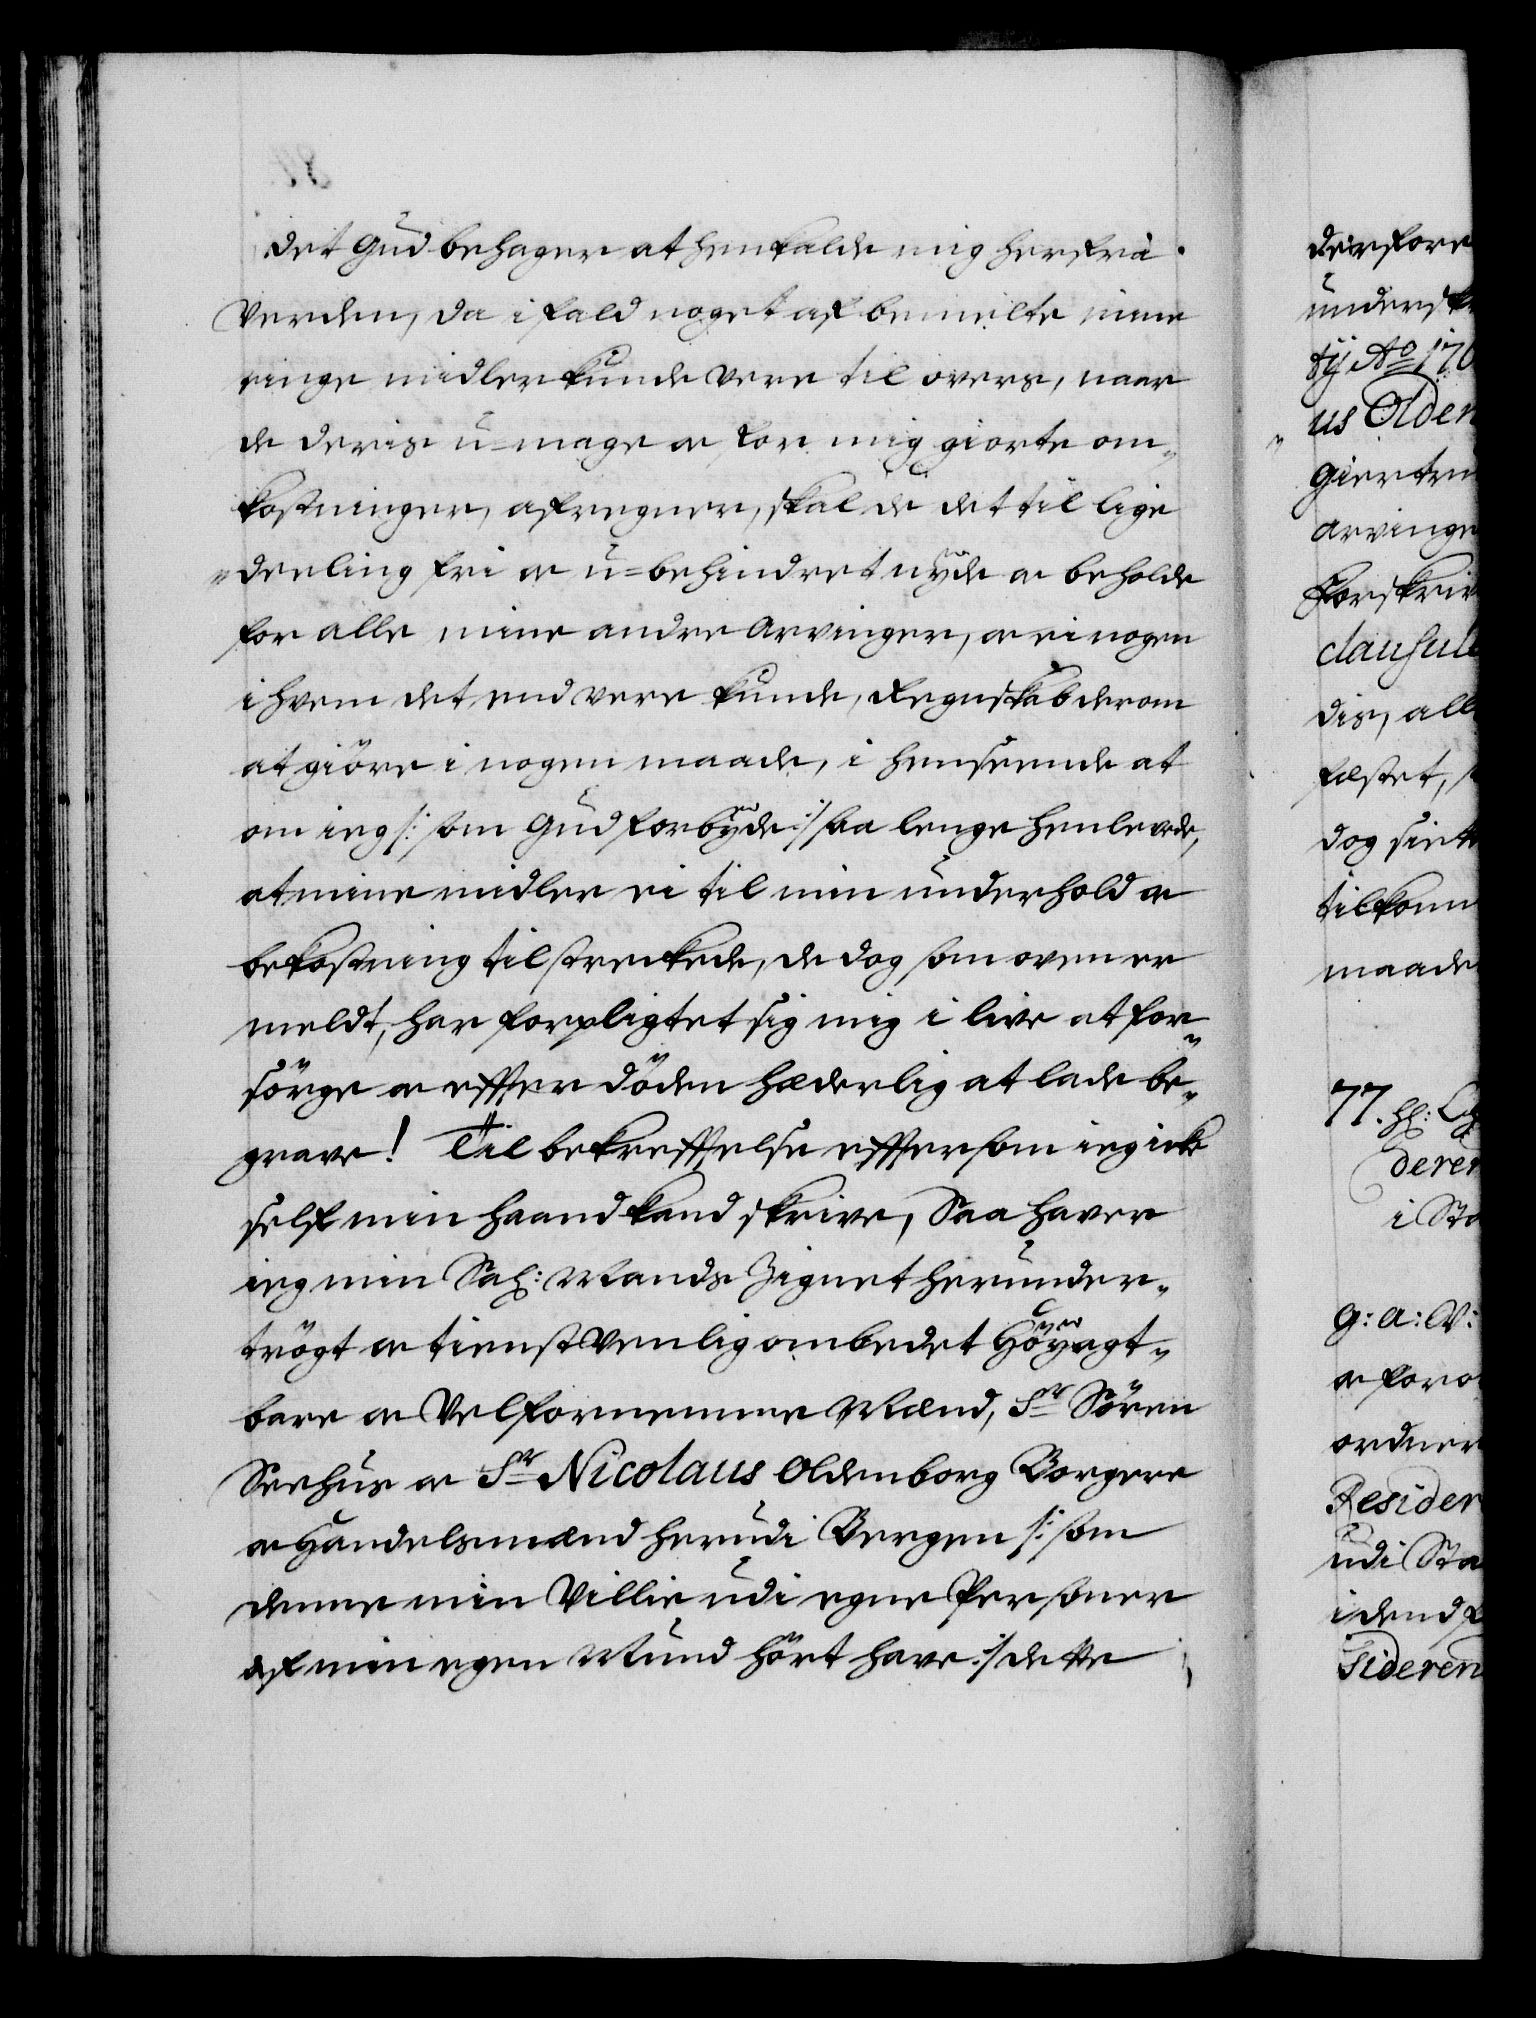 det Gud behager at henkalde mig herfra
Verden, da i fald noget af bemelte mine
ringe midler kunde vere til overs, naar
de deris u=mage oc for mig giorte om-
kostninger, afregner, skal de det til lige
deeling fri oc u=behindret nyde oc beholde
for alle mine andre Arvinger, oc ei nogen
i hvem det end vere kunde, Regnskab derom
at giöre i nogen maade, i henseende at
om ieg /: som Gud forbyde :/ saa lenge henlevede,
at mine midler ei til min underhold oc
bekostning tilstreckede, de dog som oven er
meldt, har forpligtet sig mig i live at for-
sörge oc effter döden hæderlig at lade be-
grave! Til bekreffelse effter som ieg icke
self min haand kand skrive, Saa haver
ieg min Sal: Mands Zignet herunder-
trögt oc tienstVenlig ombedet Höyagt-
bare oc Velfornemme Mænd, Sr Sören
Seehus oc Sr Nicolaus Oldenborg Borgere
oc Handelsmænd herudi Bergen /: som
denne min Villie udi egne Personer
af min egen Mund hört have :/ dette
derfore
undersk
tij Ao 170
us Olden
Giertru
arvinge
Forskriv
clausul
dis, all
fæstet,
dog siett
tilkomm
maade
77.
deren
i Sta
G: A: V:
oc foro
ordner
Residen
udi Sta
i dend
sideren